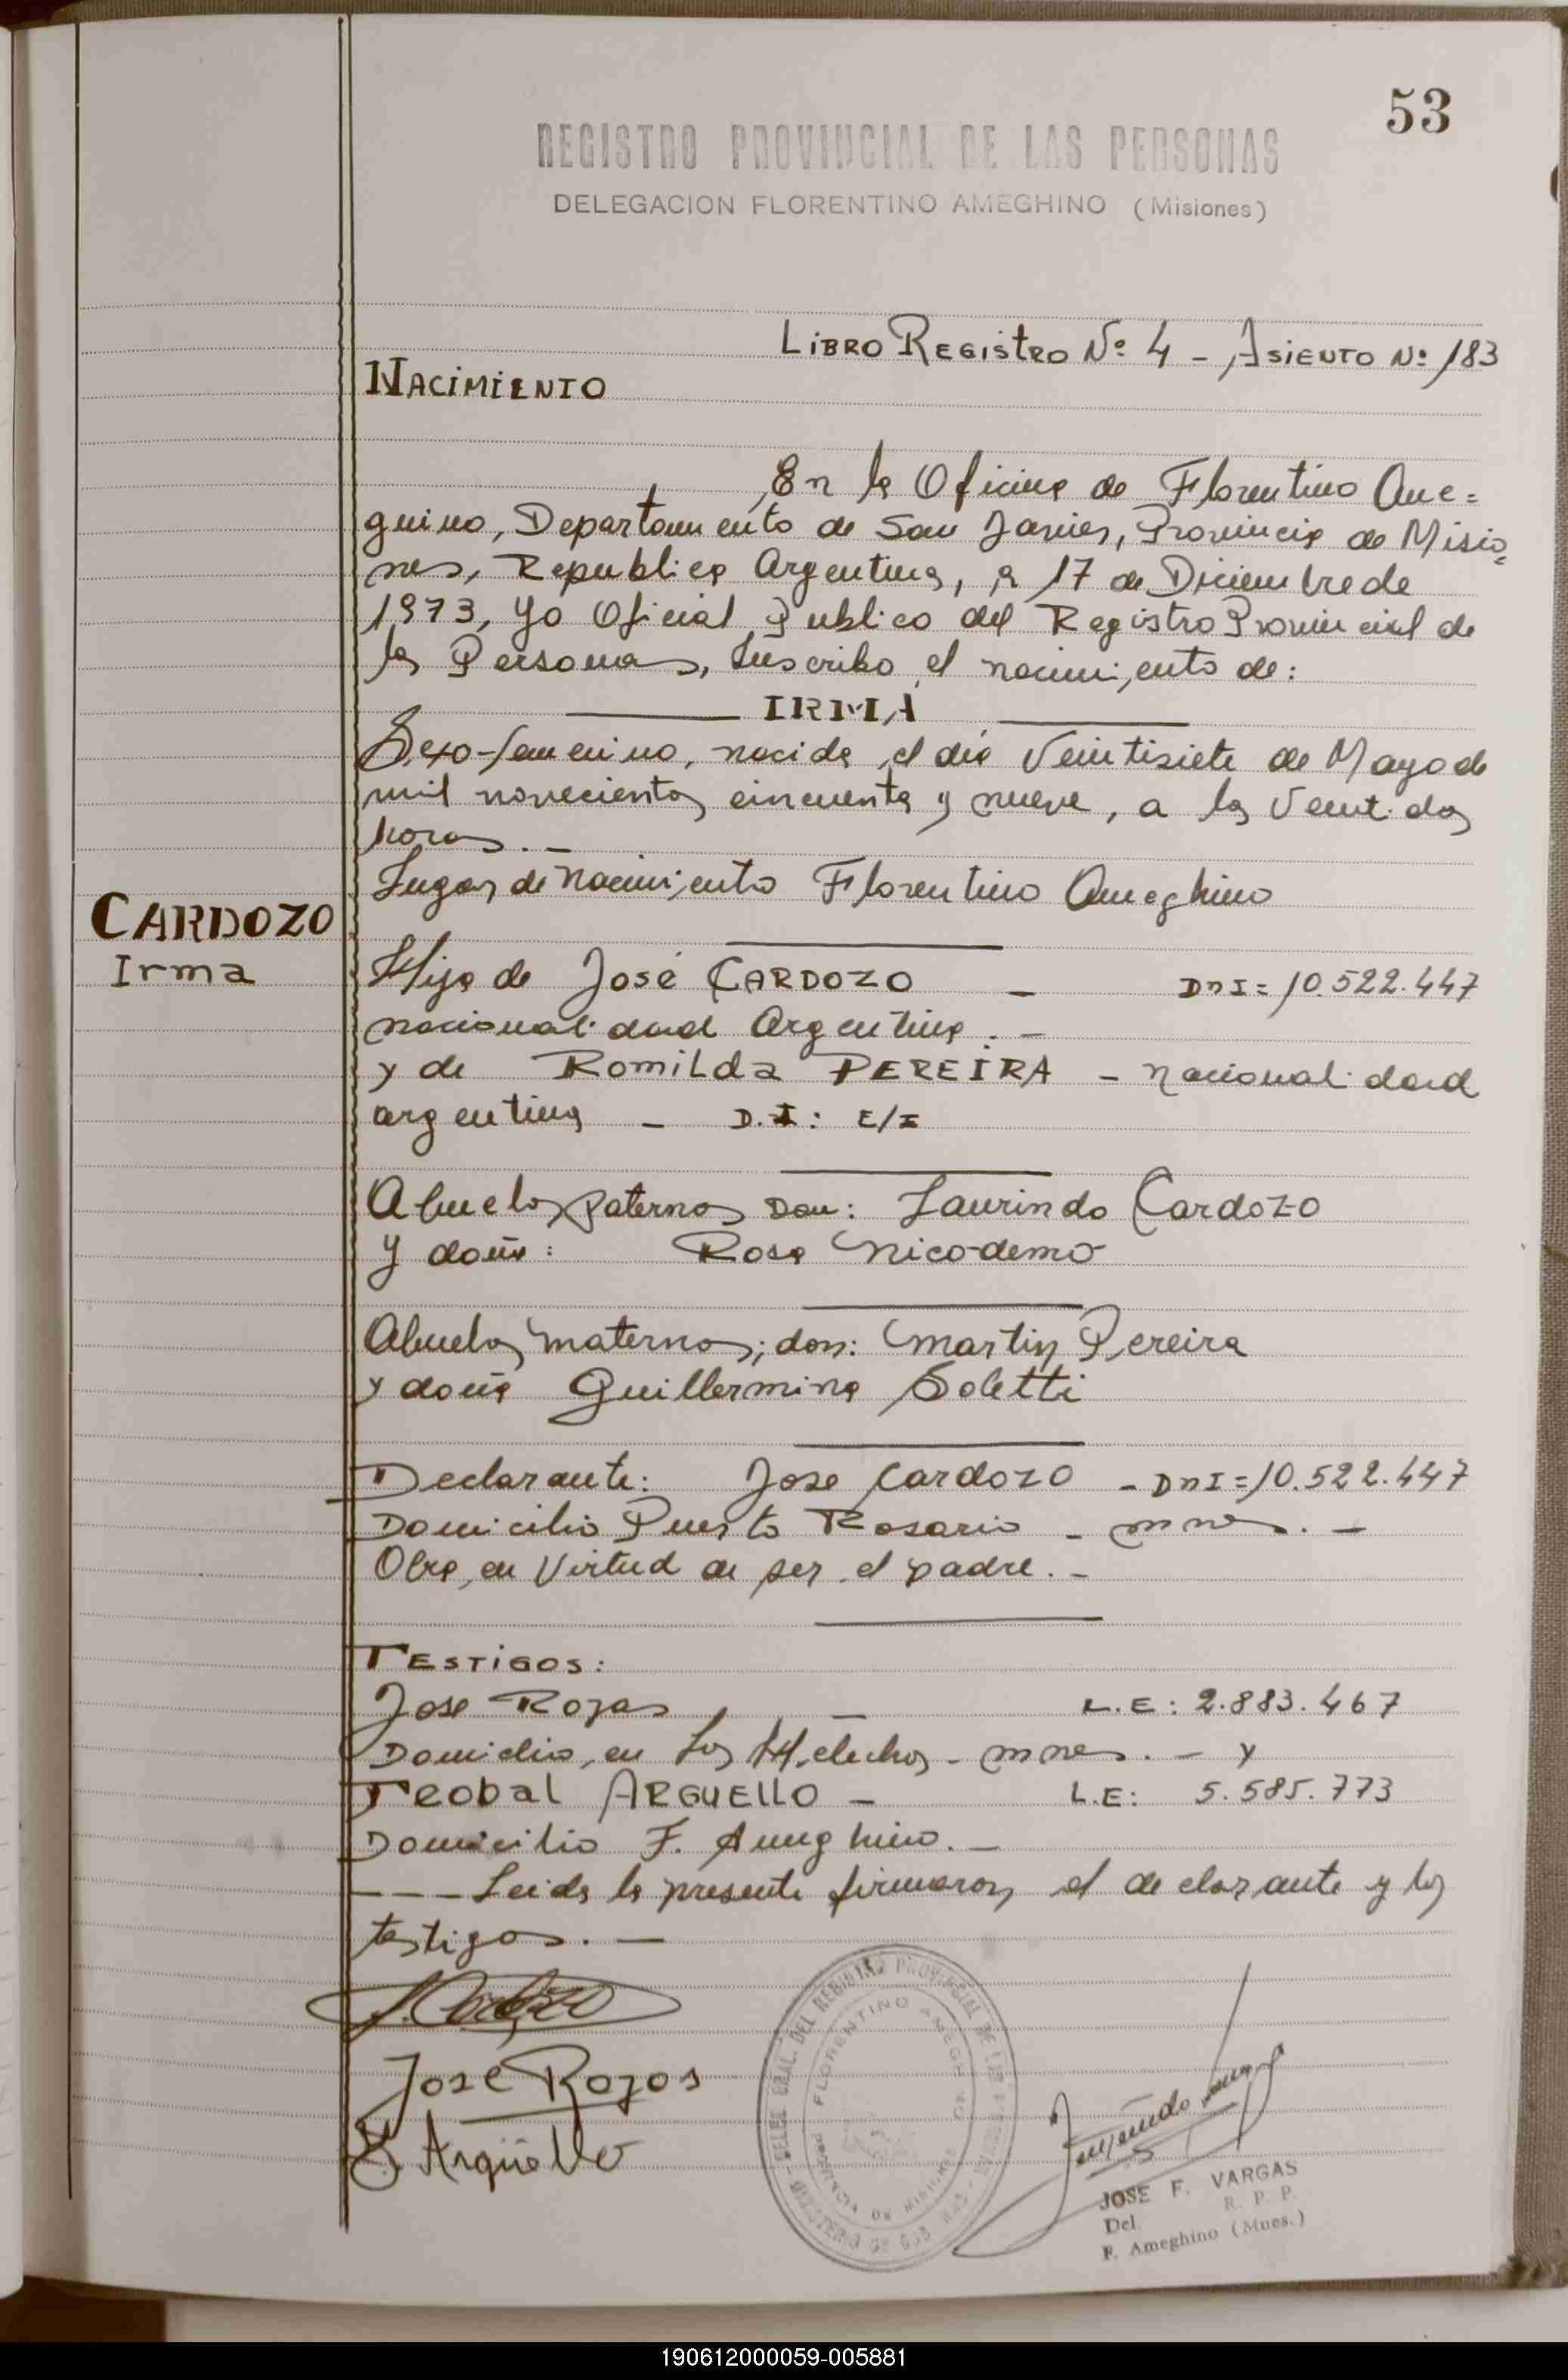 53
REGISTRO PROVINCIAL DE LAS PERSONAS
DELEGACION FLORENTINO AMEGHINO (Misiones)
LIBRO REGISTRO Nº 4 - ASIENTO Nº 183
NACIMIENTO
En la Oficina de Florentino Ame=
guino, Departamento de San Javier, Provincia de Misio=
nes, Republica Argentina, a 17 de Diciembre de
1973, Yo Oficial Publico del Registro Provincial de
las Personas, Inscribo el nacimiento de:
IRMA
Sexo-femenino, nacida el dia Veintisiete de Mayo de
mil novecientos cincuenta y nueve, a las Veintidos
horas.-
Lugar de Nacimiento Florentino Ameghino
CARDOZO
Irma
Hija de José CARDOZO - DNI= 10.522.447
nacionalidad Argentina.-
y de Romilda PEREIRA - nacionalidad
argentina - D.I: E/I
Abuelos paternos Don: Laurindo Cardozo
y doña: Rosa Nicodemo
Abuelos maternos; don: Martin Pereira
y doña Guillermina Soletti
Declarante: Jose Cardozo - DNI= 10.522.447
Domicilio Puerto Rosario - mnes.-
Obra, en Virtud de ser el padre.-
TESTIGOS:
Jose Rojas - L.E: 2.883.467
Domicilio, en Los Helechos - mnes.- y
Teobal ARGUELLO - L.E: 5.585.773
Domicilio F. Ameghino.-
--- Leida la presente firmaron el declarante y los
testigos.-
J. Cardozo
Jose Rojos
Argüello
DELEG. GRAL. DEL REGISTRO PROVINCIAL DE LAS PERSONAS
FLORENTINO AMEGHINO
PROVINCIA DE MISIONES
JOSE F. VARGAS
Del. R. P. P.
F. Ameghino (Mnes.)
190612000059-005881